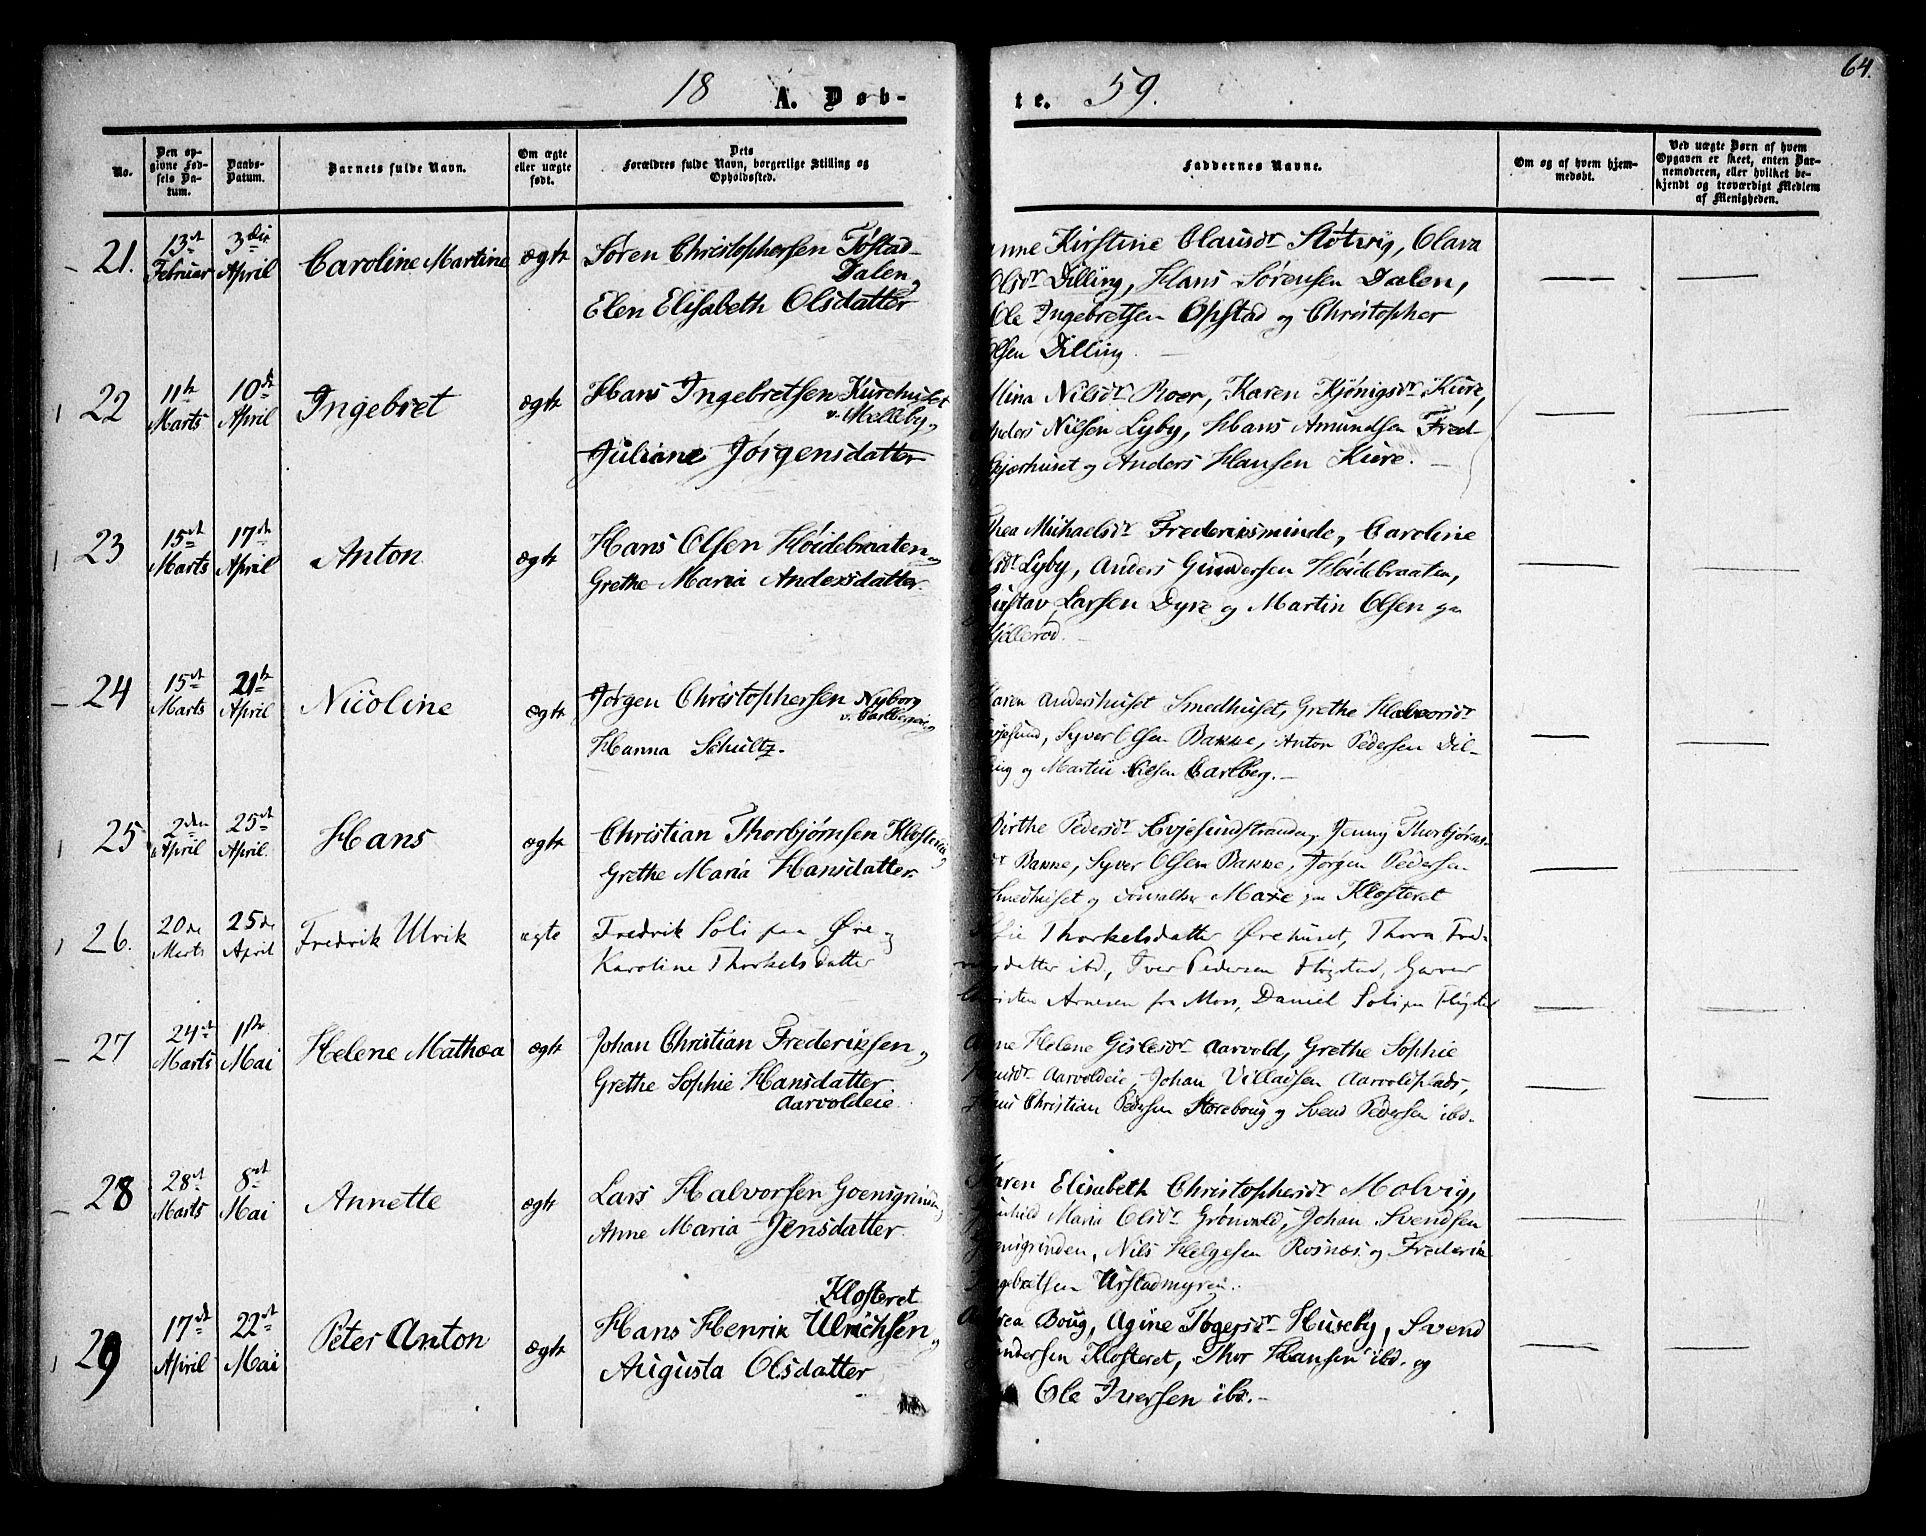 64.
18 A. Døb- te. 59.
No.
Den opgivne Fødsels Datum.
Daabs-Datum.
Barnets fulde Navn.
Om ægte eller uægte født.
Dets Forældres fulde Navn, borgerlige Stilling og Opholdssted.
Faddernes Navne.
Om og af hvem hjemmedøbt.
Ved uægte Børn af hvem Opgaven er skeet, enten Barnemoderen, eller hvilket bekjendt og troværdigt Medlem af Menigheden.
21. 13de Februar 3die April Caroline Martine ægte
Søren Christophersen Tøstad-
Dalen,
Elen Elisabeth Olsdatter
Kirstine Clausdr Støtvig, Olava
Olsdr Dilling, Hans Sørensen Dalen,
Ole Ingebretsen Opstad og Christopher
Olsen Dilling.
22 11te Marts 10de April Ingebret ægte
Hans Ingebretsen Kurehuset
v. Melleby,
Juliane Jørgensdatter
Nilsdr Roer, Karen Kjønigsdr Kure,
Nilsen Lyby, Hans Amundsen Fred-
og Anders Hansen Kure.
23 15de Marts 17de April Anton ægte
Hans Olsen Høidebraaten og
Grethe Maria Andersdatter
Thea Michaelsdr Frederiksminde, Caroline
Lyby, Anders Gundersen Høidebraaten,
Gustav Larsen Dyre og Martin Olsen paa
24 15de Marts 21de April Nicoline ægte
Jørgen Christophersen Nyborg
v. Carlberg
Hanna Schultz.
Karen Andershuset Smedhuset, Grethe Halvorsdr
Syver Olsen Bakke, Anton Pedersen Dil-
ling og Martin Nilsen Carlberg.
25 2den April 25de April Hans ægte
Christian Thorbjørnsen Klosteret
Grethe Maria Hansdatter
Birthe Pedersdr Evjesundstranden, Jenny Thorbjørns-
dr Bakke, Syver Olsen Bakke, Jørgen Pedersen
Smedhuset og paa Klosteret
26. 20de Marts 25de April Fredrik Ulrik ægte
Fredrik Soli paa Øre og
Karoline Thorkelsdatter
Thorkelsdatter Ørehuset, Thora Fred-
datter ibd, Iver Pedersen Fløgstad, Garver
Arnesen fra Moss, Daniel Soli paa
27 24de Marts 1ste Mai Helene Mathea ægte
Johan Christian Frederiksen og
Grethe Sophie Hansdatter
Aarvoldeie
Anne Helene Gislesdr Aarvold, Grethe Sophie
Aarvoldeie, Johan Aarvoldplads,
Christian Pedersen Storeboug og Svend Pedersen ibd.
28 28de Marts 8de Mai Annette ægte
Lars Halvorsen Goensgrind,
Anne Maria Jensdatter
Karen Elisabeth Christophersdr Molvig,
Maria Olsdr Grønvold, Johan Svendsen
Goensgrinden, Nils Helgesen Rosnæs og Frederik
Ingebretsen Urstadmyren.
29 17de April 22de Mai Peter Anton ægte
Klosteret
Hans Henrik Ulrichsen og
Augusta Olsdatter
Boug, Agine Tøgersdr Huseby, Svend
Gundersen Klosteret, Thor Hansen ibd. og
Ole Iversen ibd.